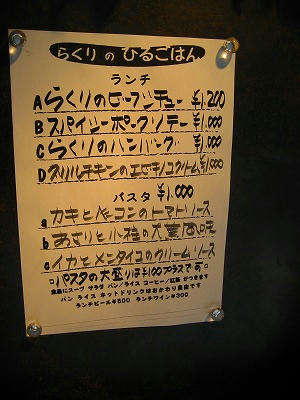 らくりのひるごはん
ランチ
Aらくりのビーフシチュー ¥1,200
Bスパイシーポークソテー ¥1,000
Cらくりのハンバーグ ¥1,000
Dグリルチキンのエビキノコクリーム ¥1,000
パスタ ¥1,000
a カキとベーコンのトマトソース
b あさりと小柱の大葉風味
c イカとメンタイコのクリームソース
□パスタの大盛りは¥100プラスです□
全品にスープ サラダ パン/ライス コーヒー/紅茶 がつきます
パン ライス ホットドリンクはおかわり自由です
ランチビール¥500 ランチワイン¥300